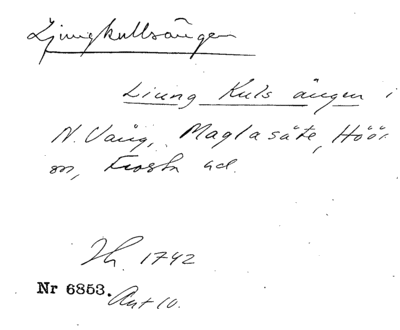 Ljungkullsängen
Liung Kuls ängen i
N. Vång, Maglasäte, Höör
sn, Frosta hd.
Th. 1742
Nr 6853.
Ant 10.